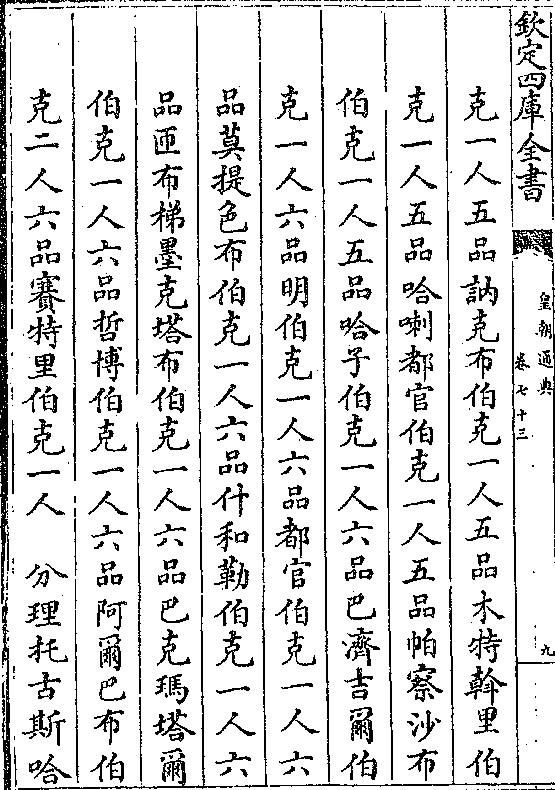 欽定四庫全書
皇朝通典
卷七十三
九
克一人五品訥克布伯克一人五品木特斡里伯
克一人五品哈喇都官伯克一人五品帕察沙布
伯克一人五品哈子伯克一人六品巴濟吉爾伯
克一人六品明伯克一人六品都官伯克一人六
品莫提色布伯克一人六品什和勒伯克一人六
品匝布梯墨克塔布伯克一人六品巴克瑪塔爾
伯克一人六品哲博伯克一人六品阿爾巴布伯
克二人六品賽特里伯克一人　分理托古斯哈